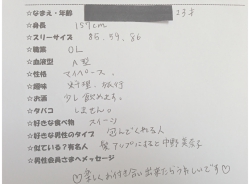 ☆なまえ・年齢 23才
☆身長 157cm
☆スリーサイズ 85.59.86
☆職業 OL
☆血液型 A型
☆性格 マイペース。
☆趣味 料理、旅行
☆お酒 少し飲めます。
☆タバコ しません。
☆好きな食べ物 スイーツ
☆好きな男性のタイプ 包んでくれる人
☆似ている?有名人 髪アップになると中野美奈子
☆男性会員さまへメッセージ
♡楽しくお付き合い出来たらうれしいです♡